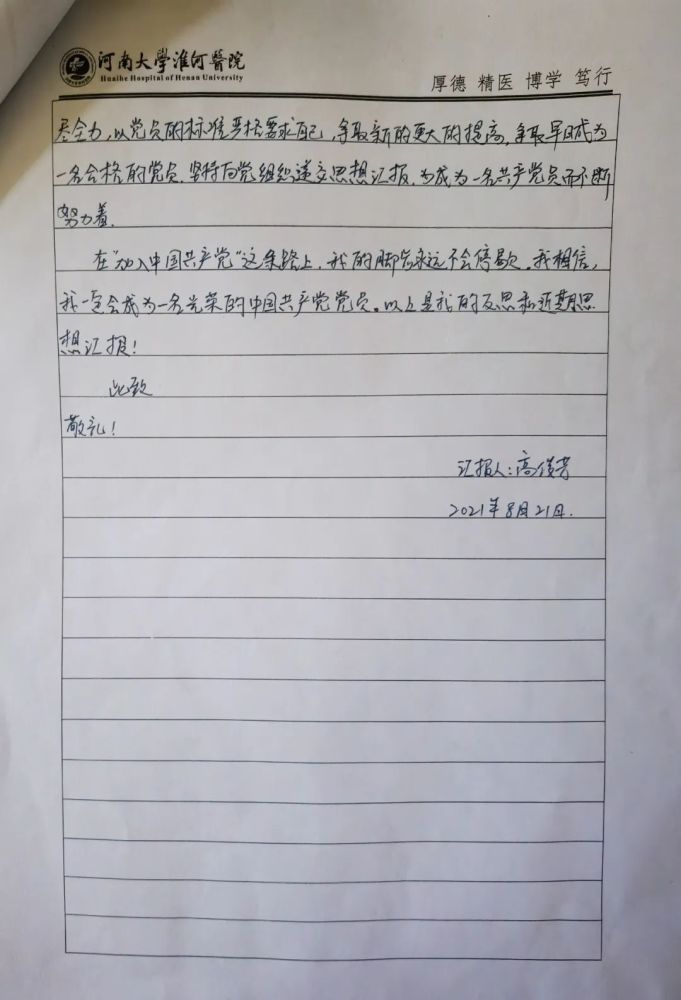 河南大學淮河醫院
Huaihe Hospital of Henan University
厚德 精医 博学 笃行
尽全力,以党员的标准严格要求自己,争取新的更大的提高,争取早日成为
一名合格的党员,坚持向党组织递交思想汇报,为成为一名共产党员而不断
努力着.
在“加入中国共产党”这条路上,我的脚步永远不会停歇.我相信,
我一定会成为一名光荣的中国共产党党员。以上是我的反思和近期思
想汇报!
此致
敬礼!
汇报人:高俊芳
2021年8月21日.